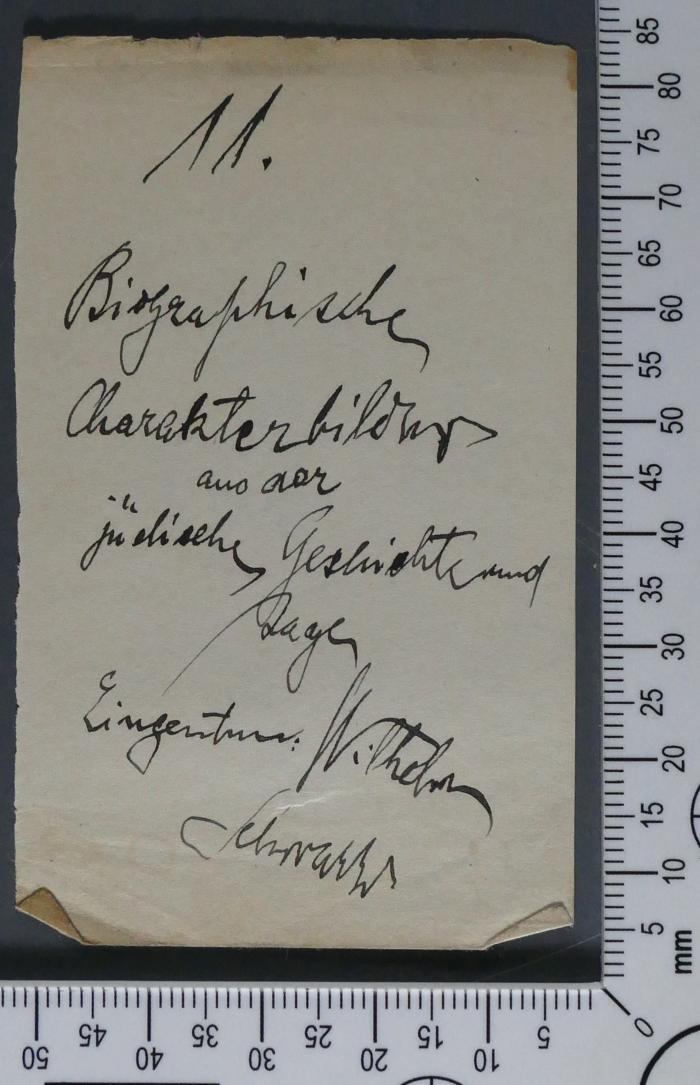 11.
Biographische
Charakterbilder
aus der
jüdische Geschichte und
Sage
Eingentum: Wilhelm
85
80
75
70
65
60
55
50
45
40
35
30
25
20
15
10
5
mm
0
50 45 40 35 30 25 20 15 10 5